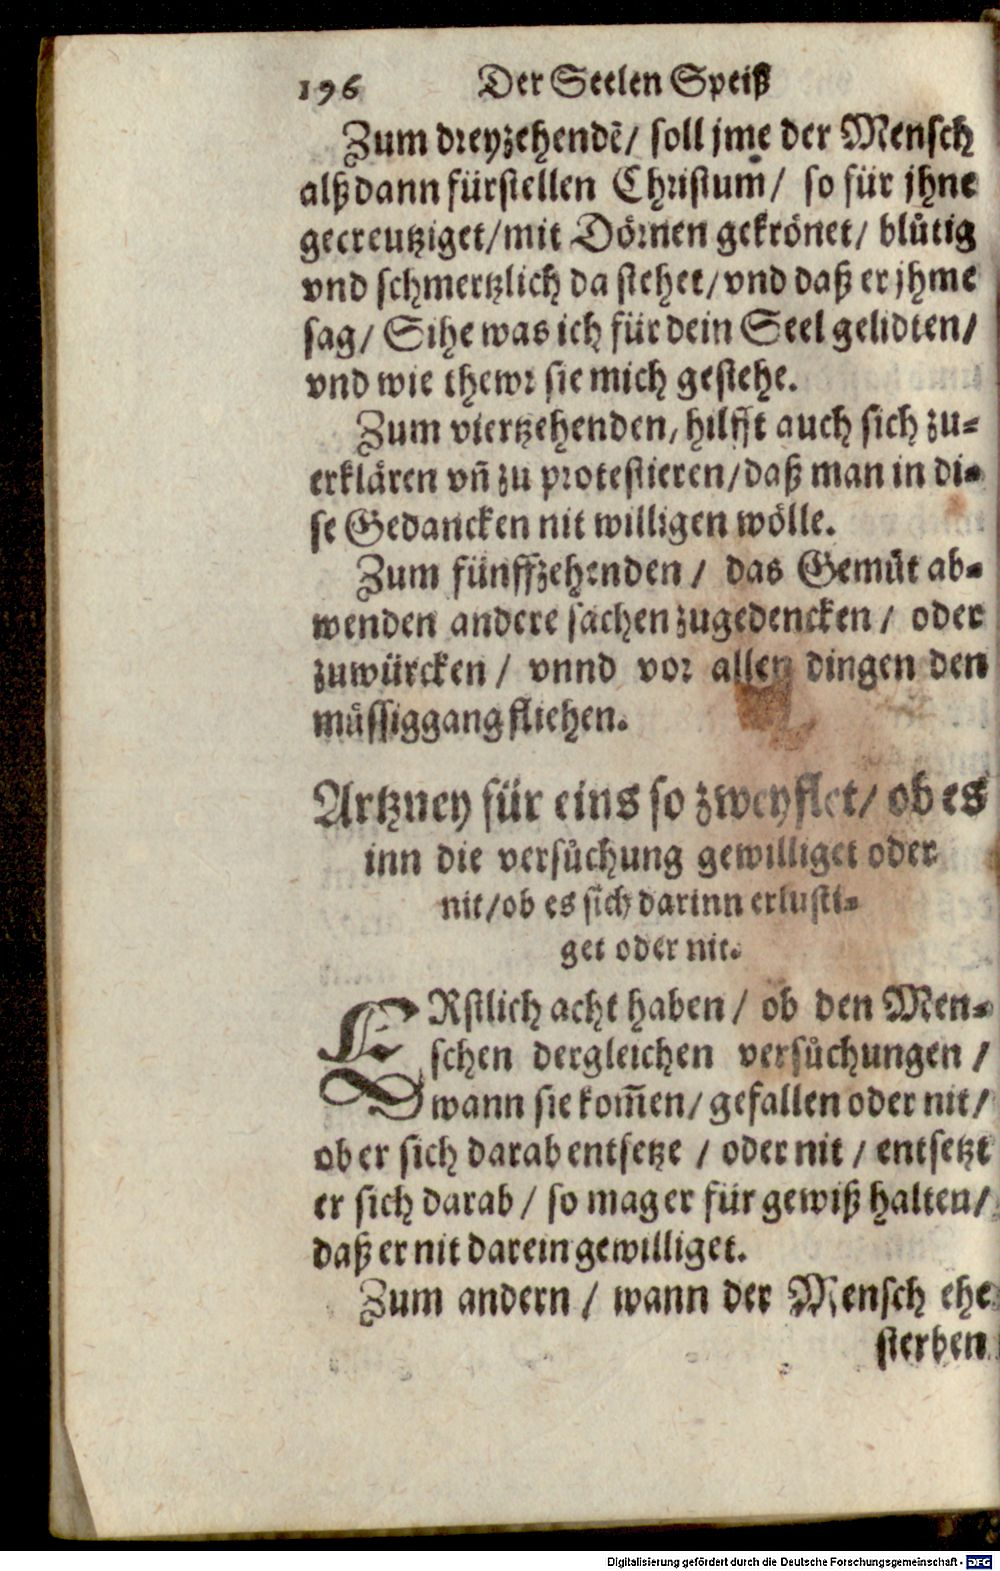 196 Der Seelen Speiß
Zum dreyzehendẽ/ soll jme der Mensch
alßdann fürstellen Christum/ so für jhne
gecreutziget/mit Dörnen gekrönet/ blůtig
vnd schmertzlich da stehet/vnd daß er jhme
sag/ Sihe was ich für dein Seel gelidten/
vnd wie thewr sie mich gestehe.
Zum viertzehenden, hilfft auch sich zu-
erklären vñ zu protestieren/daß man in di-
se Gedancken nit willigen wölle.
Zum fünffzehenden/ das Gemůt ab-
wenden andere sachen zugedencken/ oder
zuwürcken/ vnnd vor allen dingen den
můssiggang fliehen.
Artzney für eins so zweyflet/ ob es
inn die versůchung gewilliget oder
nit/ob es sich darinn erlusti-
get oder nit.
ERstlich acht haben/ ob den Men-
schen dergleichen versůchungen/
wann sie kom̃en/ gefallen oder nit/
ob er sich darab entsetze/ oder nit/ entsetzt
er sich darab/ so mag er für gewiß halten/
daß er nit darein gewilliget.
Zum andern/ wann der Mensch ehe
sterben
Digitalisierung gefördert durch die Deutsche Forschungsgemeinschaft - DFG